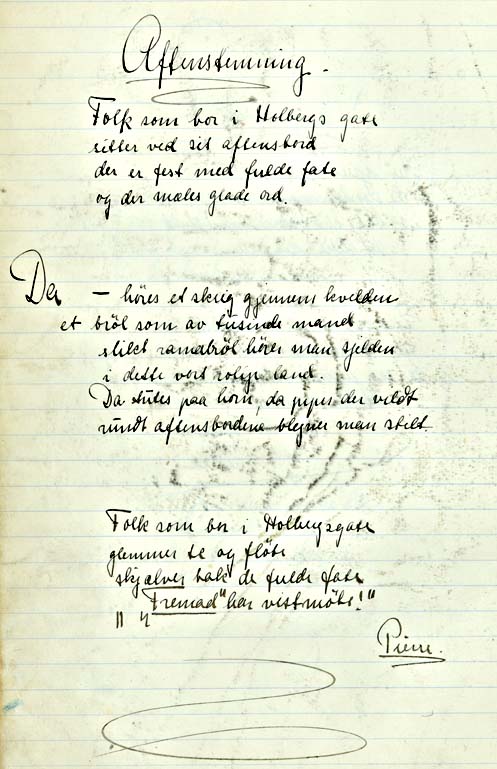 Aftenstemning.
Folk som bor i Holbergs gate
sitter ved sit aftensbord
der er fest med fulde fate
og der mæles glade ord.
Da — höres et skrig gjennem kvelden
et bröl som av tusinde mand
slikt ramabröl hörer man sjelden
i dette vort rolige land.
Da tutes paa horn, da pipes der vildt
rundt aftensbordene blegner man stilt.
Folk som bor i Holbergsgate
glemmer te og fløte
skjælver bak de fulde fate
„ „Fremad" har vist møte!"
Pierre.